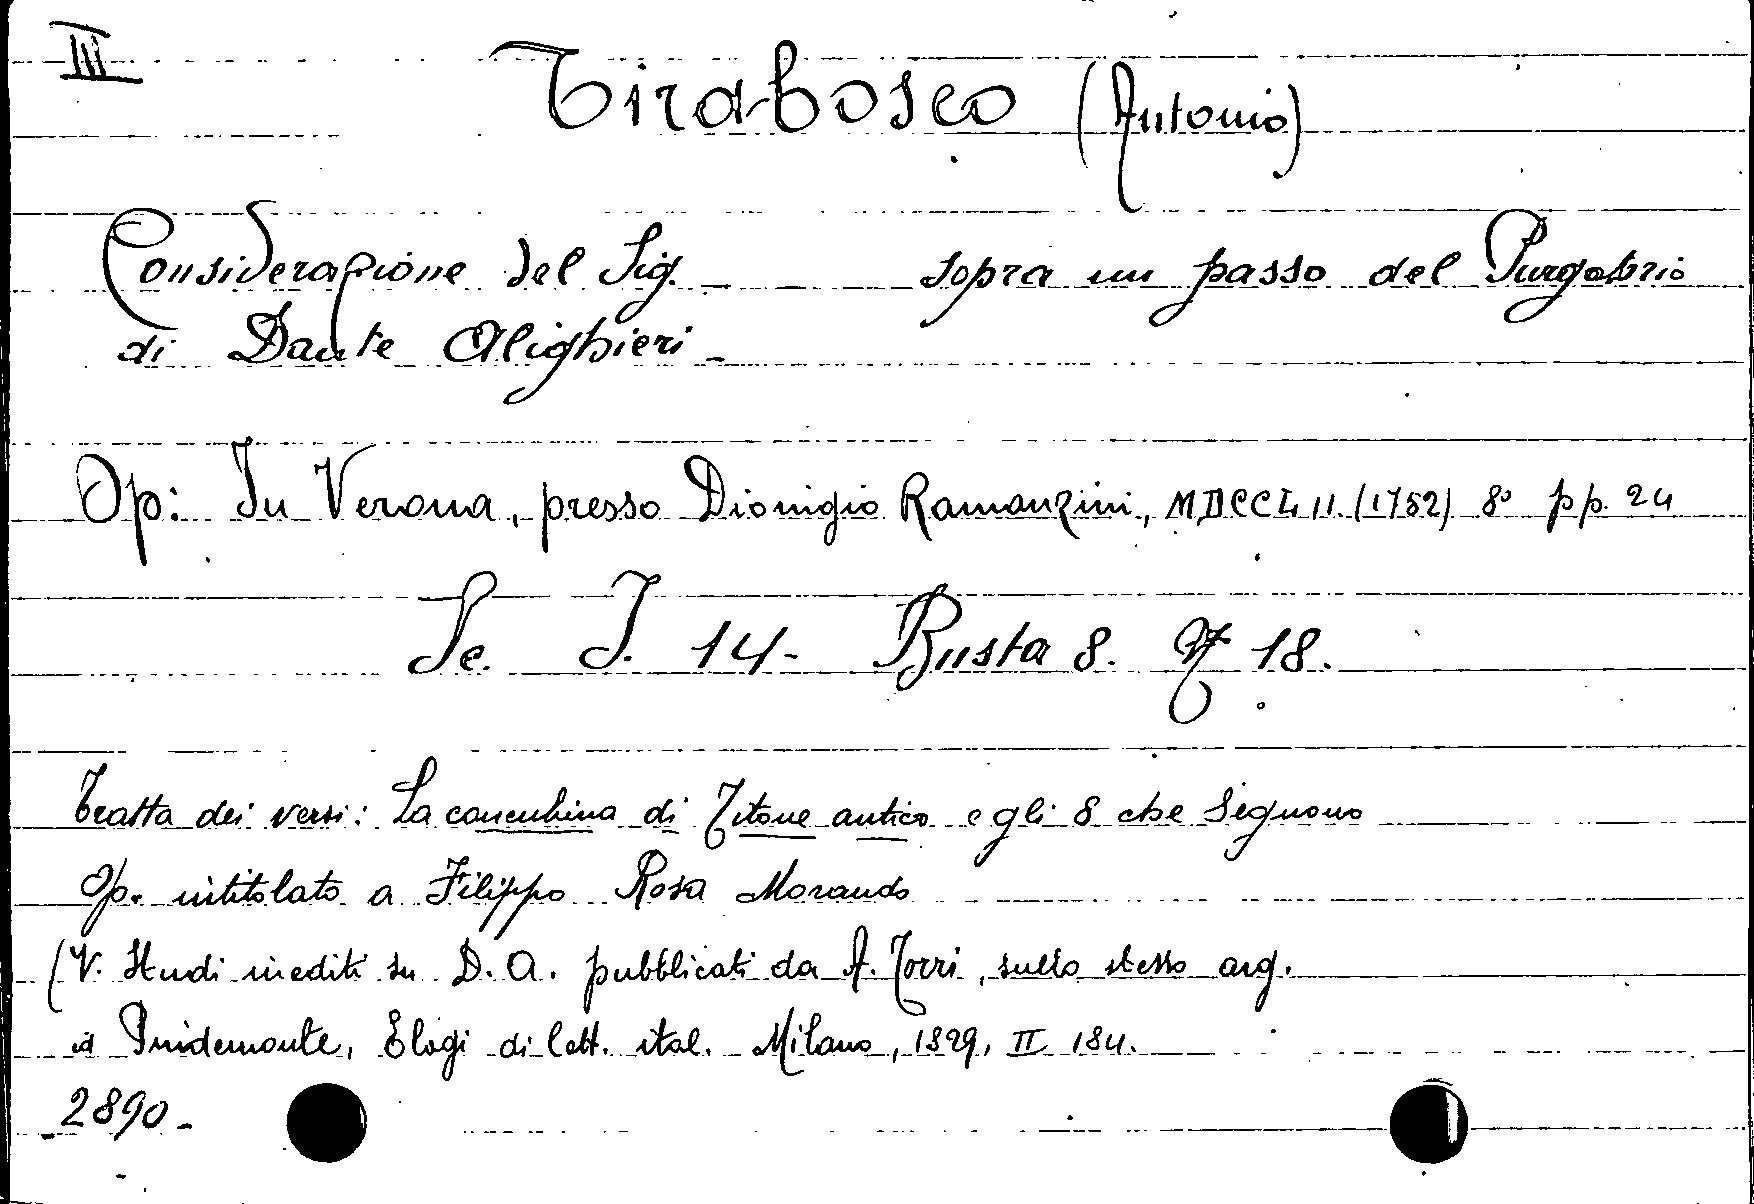 III
Tirabosco (Antonio)
Considerazione del Sig. sopra un passo del Purgatorio
di Dante Alighieri -
Op: In Verona, presso Dionigio Ramanzini, MDCCLII (1752) 8° pp. 24
Sc. I. 14 - Busta 8. N° 18.
Tratta dei versi: La concubina di Titone antico e gli 8 che seguono
Op. intitolato a Filippo Rosa Morando
(V. Studi inediti su D. A. pubblicati da A. Torri, sullo stesso arg.
Pindemonte, Elogi di lett. ital. Milano, 1829, II 184.
2890 -